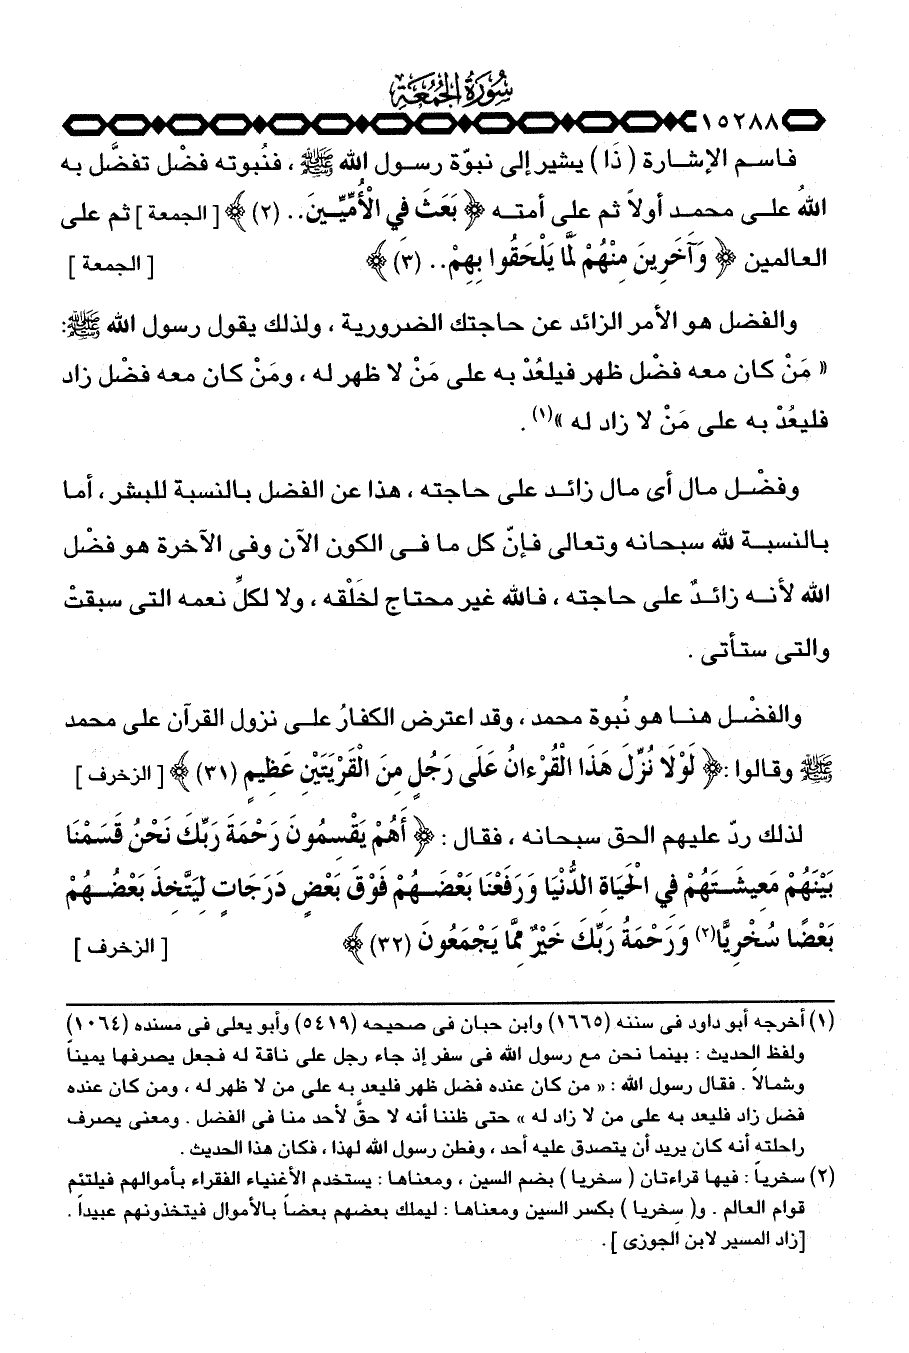 سُورَةُ الجُمُعَةِ
١٥٢٨٨
فاسم الإشارة ( ذَا ) يشير إلى نبوّة رسول الله ﷺ ، فنُبوته فضْل تفضَّل به
اللهُ على محمد أولاً ثم على أمته ﴿ بَعَثَ فِي الْأُمِّيِّينَ.. (٢) ﴾ [ الجمعة ] ثم على
العالمين ﴿ وَآخَرِينَ مِنْهُمْ لَمَّا يَلْحَقُوا بِهِمْ.. (٣) ﴾ [ الجمعة ]
والفضل هو الأمر الزائد عن حاجتك الضرورية ، ولذلك يقول رسول الله ﷺ:
« مَنْ كان معه فضْل ظهر فيلعُدْ به على مَنْ لا ظهر له ، ومَنْ كان معه فضْل زاد
فليعُدْ به على مَنْ لا زاد له »(١) .
وفضْل مال أى مال زائد على حاجته ، هذا عن الفضل بالنسبة للبشر ، أما
بالنسبة لله سبحانه وتعالى فإنّ كل ما فى الكون الآن وفى الآخرة هو فضْل
الله لأنه زائدٌ على حاجته ، فالله غير محتاج لخَلْقه ، ولا لكلِّ نعمه التى سبقتْ
والتى ستأتى .
والفضْل هنا هو نُبوة محمد ، وقد اعترض الكفارُ على نزول القرآن على محمد
ﷺ وقالوا :﴿ لَوْلَا نُزِّلَ هَذَا الْقُرْءَانُ عَلَى رَجُلٍ مِنَ الْقَرْيَتَيْنِ عَظِيمٍ (٣١) ﴾ [ الزخرف ]
لذلك ردّ عليهم الحق سبحانه ، فقال : ﴿ أَهُمْ يَقْسِمُونَ رَحْمَةَ رَبِّكَ نَحْنُ قَسَمْنَا
بَيْنَهُمْ مَعِيشَتَهُمْ فِي الْحَيَاةِ الدُّنْيَا وَرَفَعْنَا بَعْضَهُمْ فَوْقَ بَعْضٍ دَرَجَاتٍ لِيَتَّخِذَ بَعْضُهُمْ
بَعْضًا سُخْرِيًّا(٢) وَرَحْمَةُ رَبِّكَ خَيْرٌ مِمَّا يَجْمَعُونَ (٣٢) ﴾ [ الزخرف ]
(١) أخرجه أبو داود فى سننه (١٦٦٥) وابن حبان فى صحيحه (٥٤١٩) وأبو يعلى فى مسنده (١٠٦٤)
ولفظ الحديث : بينما نحن مع رسول الله فى سفر إذ جاء رجل على ناقة له فجعل يصرفها يميناً
وشمالاً . فقال رسول الله : « من كان عنده فضل ظهر فليعد به على من لا ظهر له ، ومن كان عنده
فضل زاد فليعد به على من لا زاد له » حتى ظننا أنه لا حقَّ لأحد منا فى الفضل . ومعنى يصرف
راحلته أنه كان يريد أن يتصدق عليه أحد ، وفطن رسول الله لهذا ، فكان هذا الحديث .
(٢) سخرياً : فيها قراءتان ( سخريا ) بضم السين ، ومعناها : يستخدم الأغنياء الفقراء بأموالهم فيلتئم
قوام العالم . و( سخريا ) بكسر السين ومعناها : ليملك بعضهم بعضاً بالأموال فيتخذونهم عبيداً .
[زاد المسير لابن الجوزى ] .